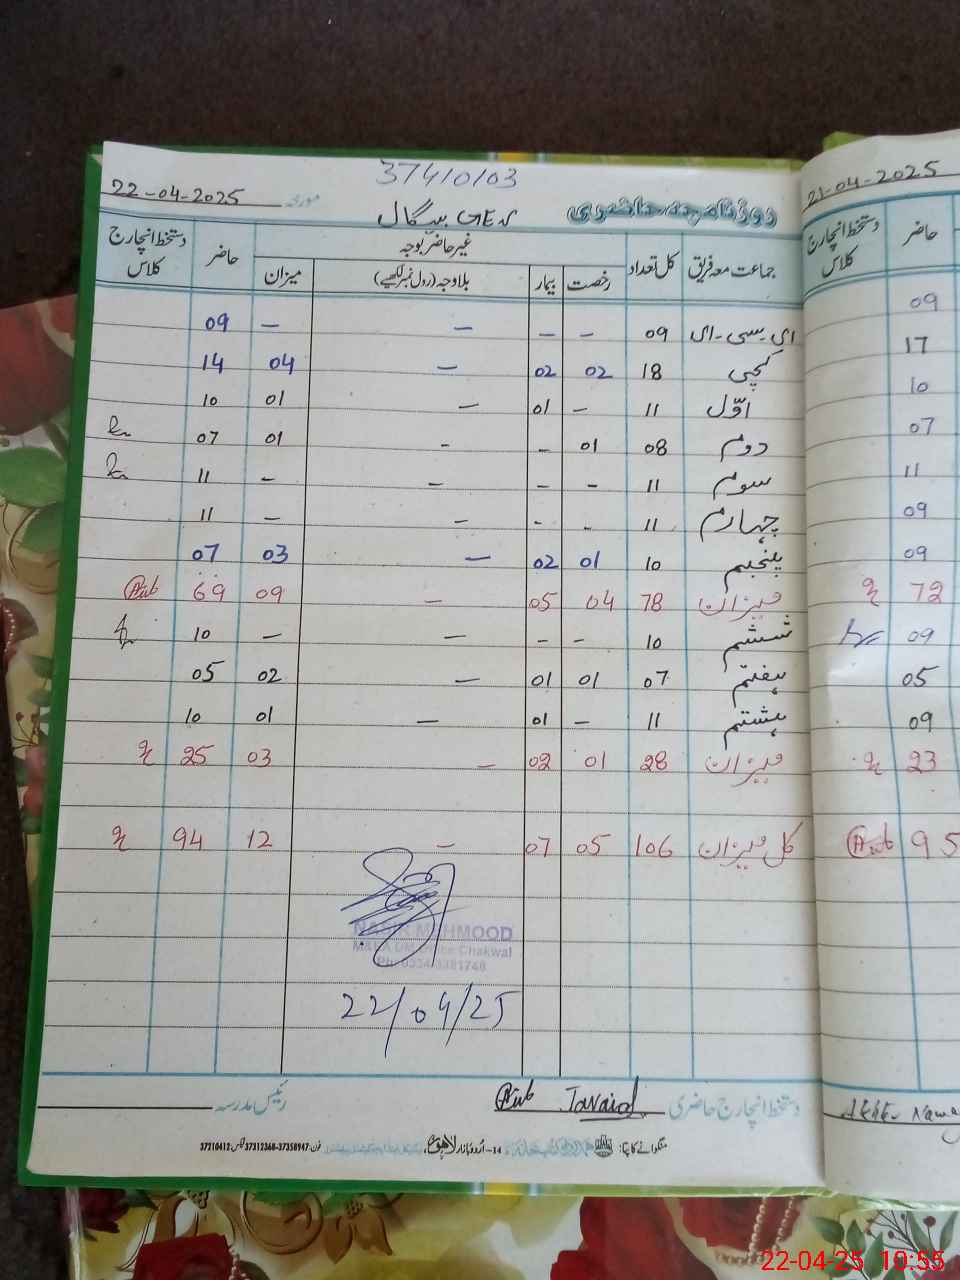 37410103
22-04-2025 مورخہ
روزنامچہ حاضری
21-04-2025
جماعت معہ فریق کل تعداد غیر حاضر بوجہ حاضر دستخط انچارج کلاس
رخصت بیمار بلاوجہ (رول نمبر لکھیے) میزان
ای-سی-ای 09 - - - - 09
کچی 18 02 02 - 04 14
اوّل 11 - 01 - 01 10
دوم 08 01 - - 01 07
سوم 11 - - - - 11
چہارم 11 - - - - 11
پنجم 10 01 02 - 03 07
میزان 78 04 05 - 09 69
ششم 10 - - - - 10
ہفتم 07 01 01 - 02 05
ہشتم 11 - 01 - 01 10
میزان 28 01 02 - 03 25
کل میزان 106 05 07 - 12 94
MAHMOOD
Chakwal
22/04/25
دستخط انچارج حاضری Javaid
رئیس مدرسہ
منگوانے کا پتا:
14-اُردو بازار لاہور، فون: 37358947-37312368 فیکس: 37210412
حاضر دستخط انچارج کلاس
09
17
10
07
11
09
09
72
09
05
09
23
95
22-04-25 10:55